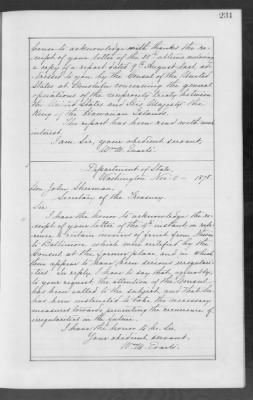 231
honor to acknowledge with thanks the re-
ceipt of your letter of the 28th ultimo enclosing
a copy of a report dated 9th August last, ad-
dressed to you by the Consul of the United
States at Honolulu concerning the general
operations of the reciprocity treaty between
the United States and His Majesty the
King of the Hawaiian Islands.
The report has been read with much
interest.
I am Sir, your obedient servant,
Wm M. Evarts.
Department of State,
Washington Nov. 1878.
Hon. John Sherman,
Secretary of the Treasury.
Sir:
I have the honor to acknowledge the re-
ceipt of your letter of the 4th instant in refe-
rence to certain invoices of fruit from
to Baltimore, which were certified by the
Consul at the former place, and in which
there appear to have been serious irregulari-
ties. In reply, I have to say that, agreeably
to your request the attention of the Consul
has been called to the subject, and that he
has been instructed to take the necessary
measures towards preventing the recurrence of
irregularities in the future.
I have the honor to be, Sir,
Your obedient servant,
Wm M. Evarts.